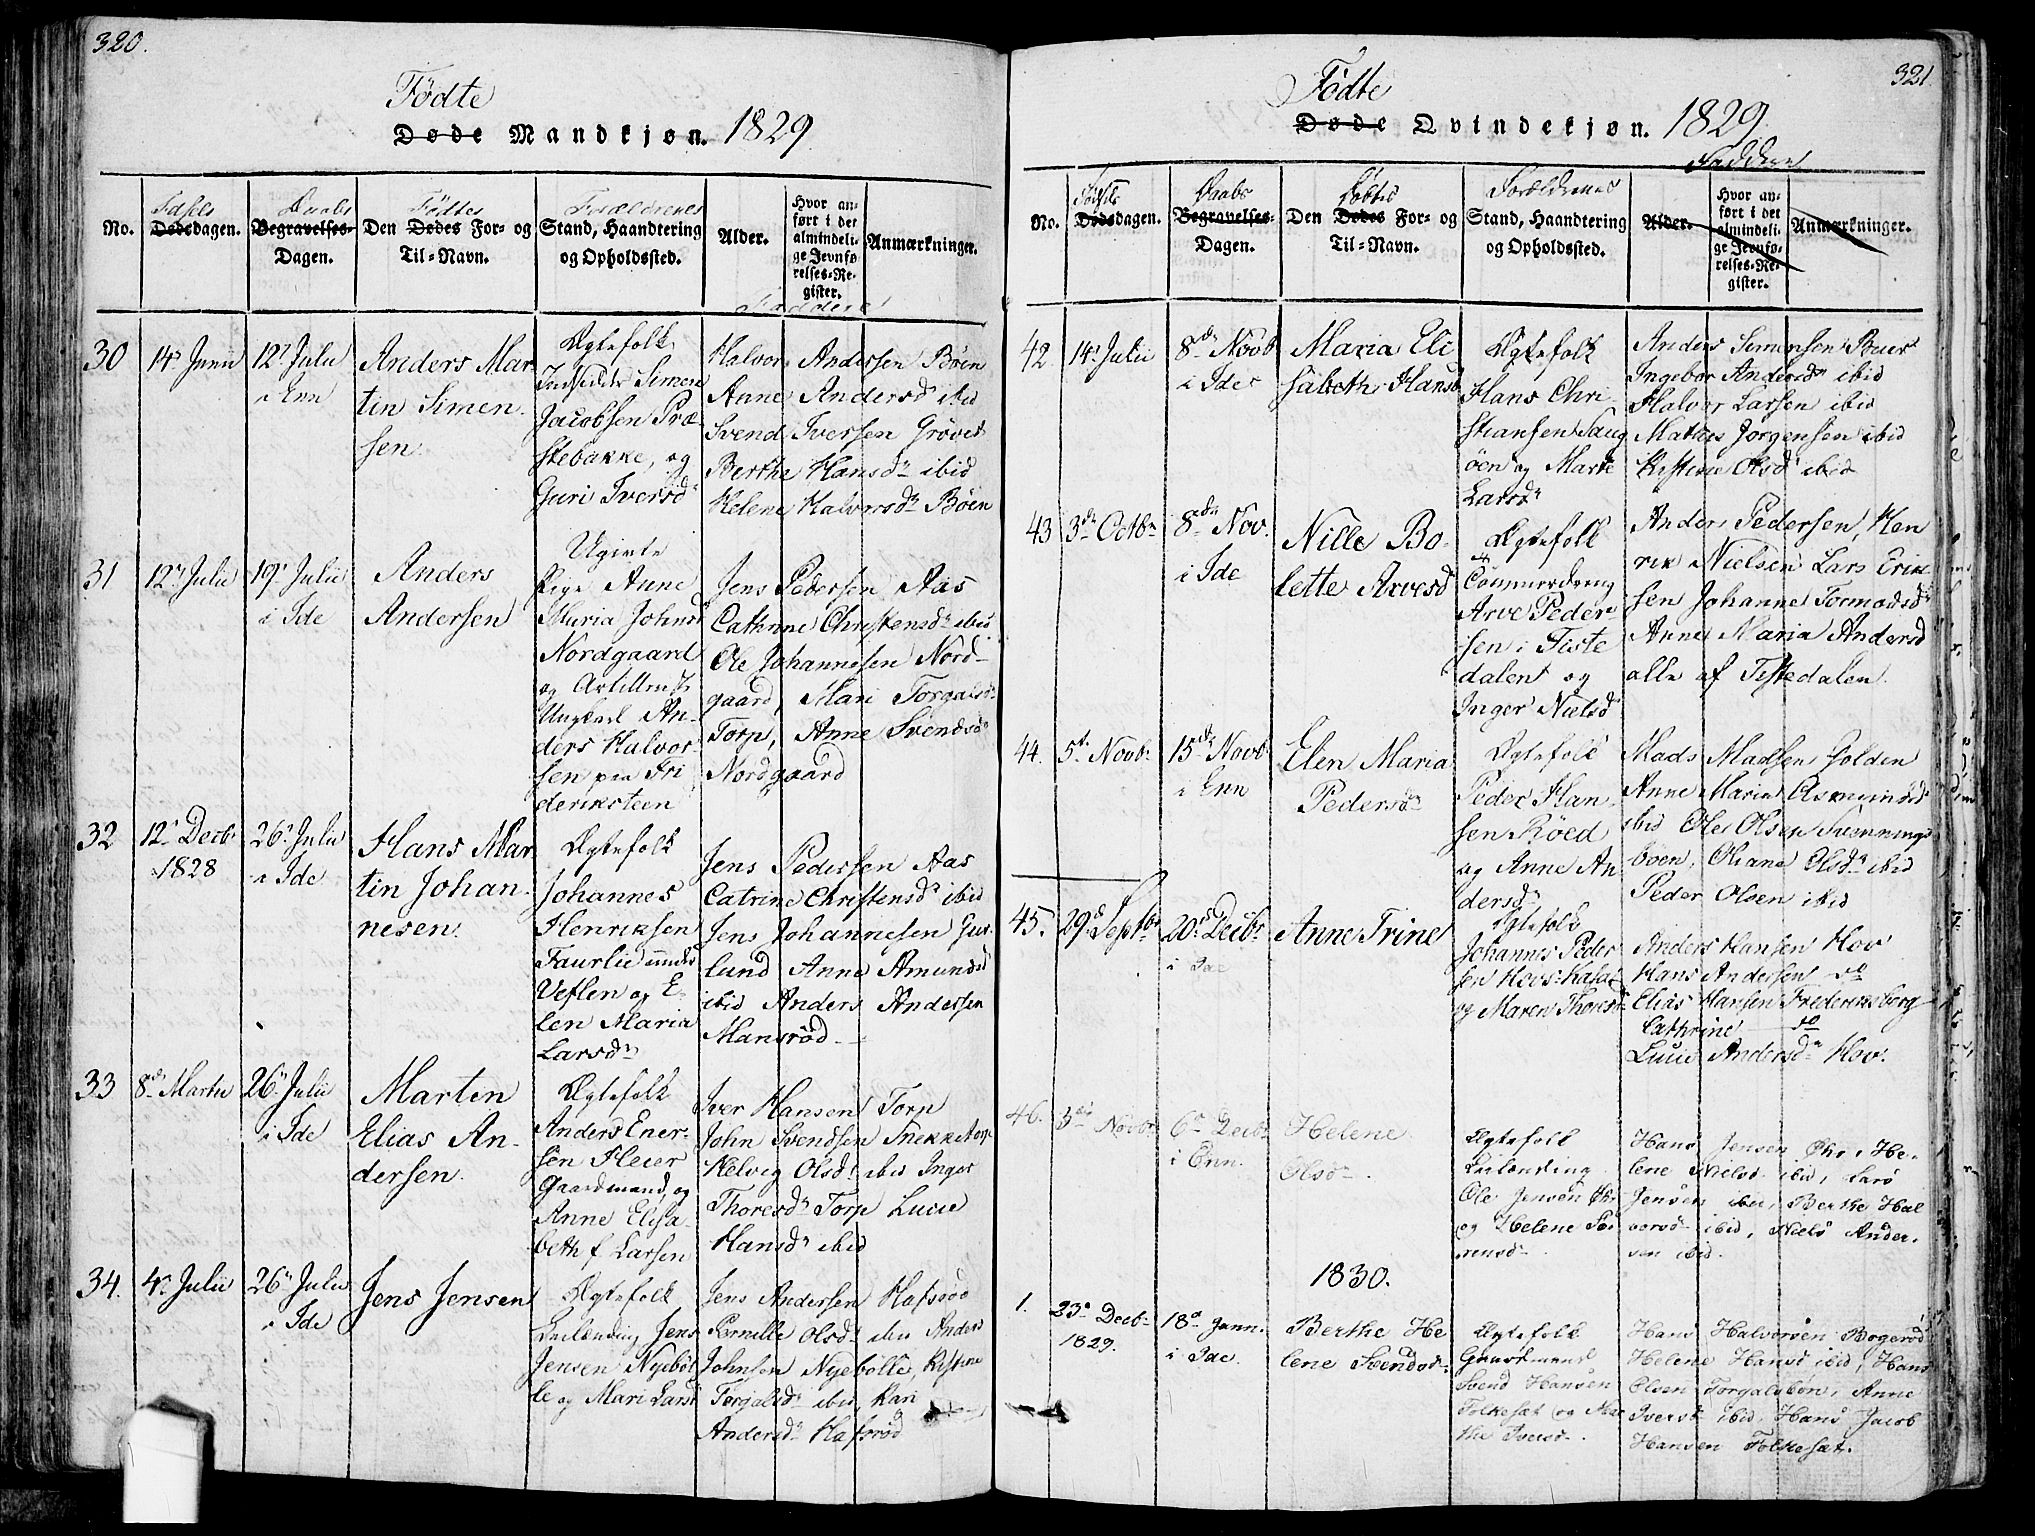 320.
Fødte
Døde Mandkjøn. 1829
No.
Fødsels
Dødsdagen.
Daabs
Begravelses-
Dagen.
Fødtes
Den Dødes For- og
Til-Navn.
Forældrenes
Stand, Haandtering
og Opholdssted.
Alder.
Hvor an-
ført i det
almindeli-
ge Jevnfø-
relses-Re-
gister.
Anmærkninger.
Faddere
30
14de Junii
12te Julii
i Enn
Anders Mar-
tin Simen-
sen
Ægtefolk
Indsidder Simen
Jacobsen Præ-
stebakke, og
Guri Iversd
Halvor Andersen Böen
Anne Andersd ibid
Svend Iversen Grövet
Berthe Hansdr ibid
Helene Halvorsdr Böen
31
12te Julii
19de Julii
i Ide
Anders
Andersen
Ugivte
Pige Anne
Maria Johnsd
Nordgaard
og Artillerist
Ungkarl An-
ders Halvor-
sen paa Fri
deriksteen
Jens Pedersen Aas
Cathrine Christensdr ibid
Ole Johannesen Nord-
gaard, Mari Torgalsdr
Torp, Anne Svendsdr
Nordgaard
32
12te Decbr
1828
26de Julii
i Ide
Hans Mar
tin Johan-
nesen.
Ægtefolk
Johannes
Henriksen
Faurlie under
Veflen og E-
len Maria
Larsdr
Jens Pedersen Aas
Catrine Christensdr ibid
Jens Johannesen
lund Anne Amundsd
ibid Anders Andersen
Mansröd
33
8de Martii
26de Julii
i Ide
Marten
Elias An-
dersen.
Ægtefolk
Anders Ener-
sen Heier
Gaardmand, og
Anne Elisa-
beth f. Larsen
Iver Hansen Torp
John Svendsen Snekketorp
Helvig Olsdr ibid Inger
Thoresdr Torp Lucie
Hansdr ibid
34.
4de Julii
26de Julii
i Ide
Jens Jensen
Ægtefolk
Leilænding Jens
Jensen Nyeböl
le og Mari Larsd
Jens Andersen Hafsröd
Pernille Olsdr ibid Anders
Johnsen Nyebölle, Kistine
Torgalsdr ibid, Kari
Andersdr Hafsröd
321
Fødte
Døde Qvindekjøn. 1829.
Faddere
No.
Fødsels
Dødsdagen.
Daabs
Begravelses-
Dagen.
Fødtes
Den Dødes For- og
Til-Navn.
Forældrenes
Stand, Haandtering
og Opholdssted.
Alder.
Hvor an-
ført i det
almindeli-
ge Jevnfø-
relses-Re-
gister.
Anmærkninger.
42.
14de Julii
8de Novb
i Ide
Maria Eli
sabeth Hansd
Ægtefolk
Hans Chri-
stiansen Saug
öen og Marte
Larsdr
Anders Simensen Buer
Ingebor Andersdr ibid
Halvor Larsen ibid
Mathis Jorgensen ibid
Kistine Olsdr ibid
43
3de Octbr
8de Nov.
i Ide
Nille Bo-
lette Arvesd
Ægtefolk
Arve Peder-
sen i Tiste
dalen og
Inger Nielsd
Anders Pedersen, Hen
rik Nielsen Lars Erik
sen Johanne Tormodsdr
Anne Maria Andersd
alle af Tistedalen.
44.
5te Novbr
15de Novb
i Enn
Elen Maria
Pedersdr
Ægtefolk
Peder Han-
sen Röed
og Anne An
dersdr
Mads Madsen Holden
Anne Maria Asmundsd
ibid Ole Olsen Svennings
böen, Oliane Olsdr ibid
Peder Olsen ibid
45.
29de Septbr
20de Decbr
i Ide
Anne Trine
Ægtefolk
Johannes Peder
sen Hovs
og Maren Thoresd
Anders Hansen Hov
Hans Andersen do
Elias Hansen Frederiksberg
Cathrine do
Lucie Andersdr Hov.
46.
3de Novbr
6te Decbr
i Enn.
Helene
Olsdr
Ægtefolk
Leilænding
Ole Jensen Ökr
og Helene Sö-
rensdr
Hans Jensen Ökr, He-
lene Nielsd ibid, Lars
Jensen ibid, Berthe Hal
vorsdr ibid, Niels Ander-
sen ibid.
1830.
1.
23de Decbr
1829.
18de Jann.
i Ide.
Berthe He
lene Svendsdr
Ægtefolk
Gaardmand
Svend Hansen
Folkesæt og Mar
the Iversdr
Hans Halvorsen Bogeröd
Helene Hansd ibid, Hans
Olsen Torgalsbön, Anne
Iversd ibid Hans Jacob
Hansen Folkesæt.